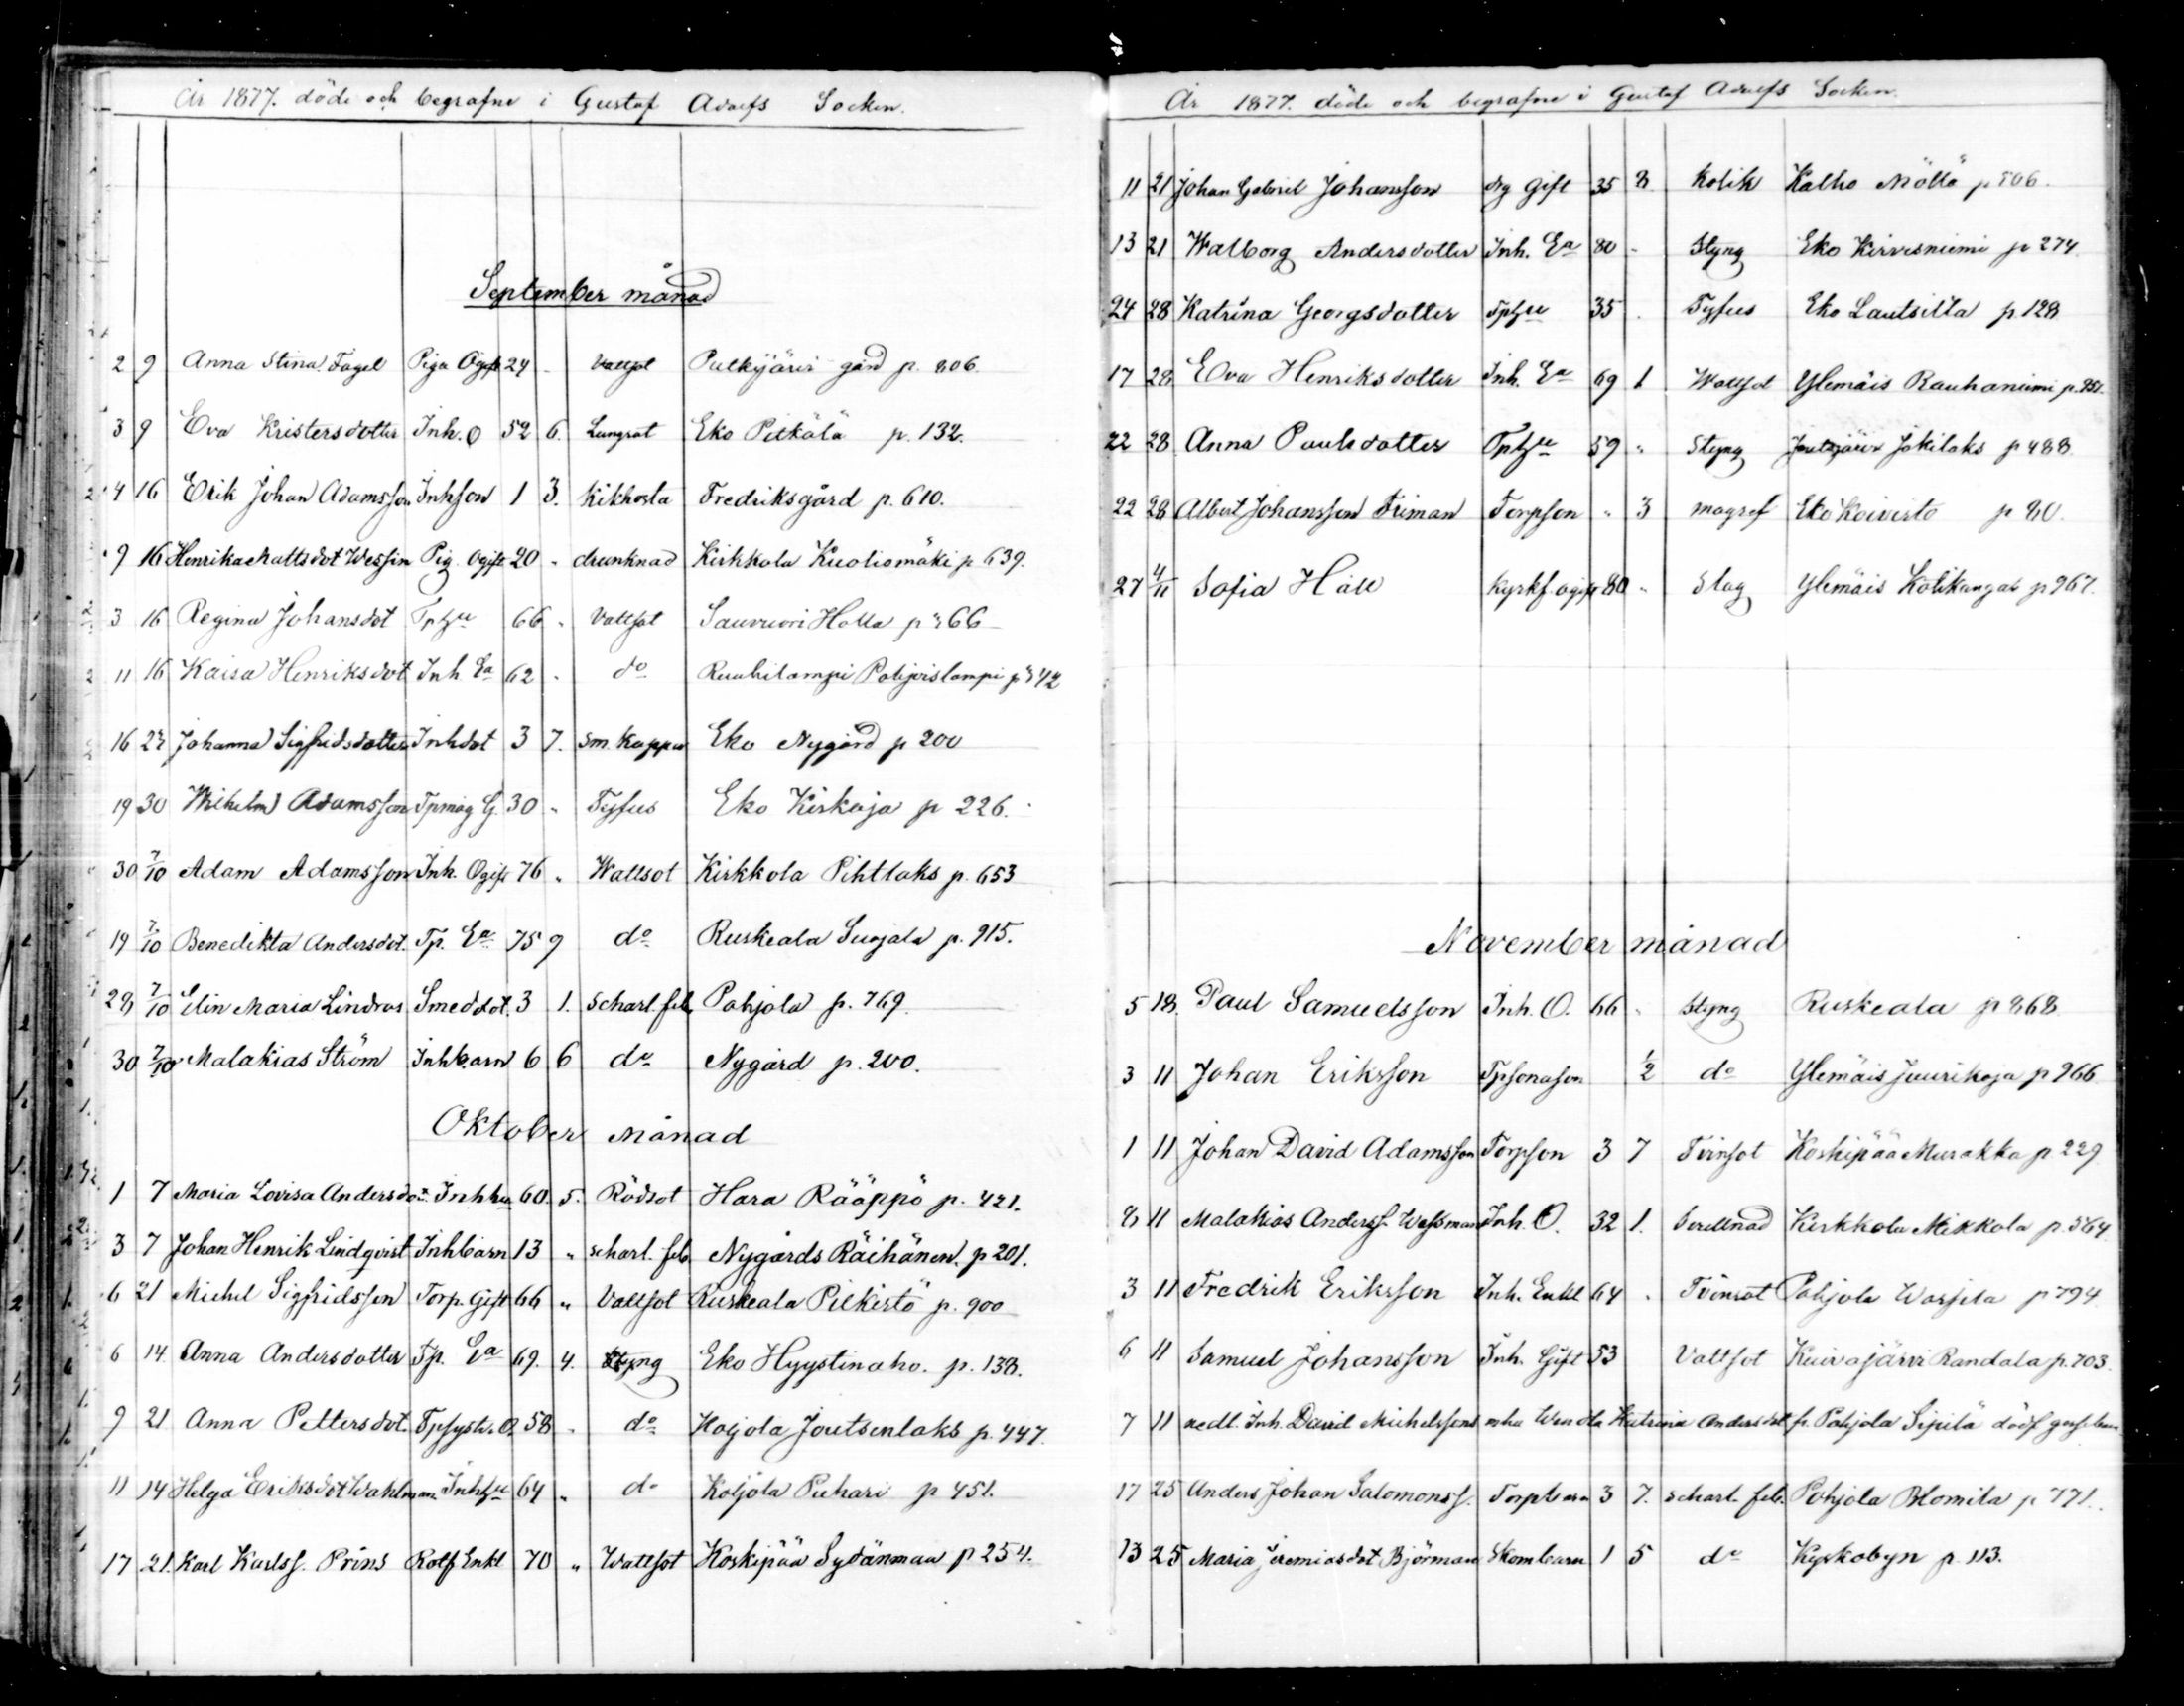 År 1877. döde och begrafne i Gustaf Adolfs Socken.
September månad
2 9 Anna Stina Fagel Piga Ogift 24 - Vattsot Pulkijärvi gård p. 806.
3 9 Eva Kristersdotter Inh. O 52 6. Lungsot Eko Pitkälä p. 132.
4 16 Erik Johan Adamsson Inhson 1 3. Kikhosta Fredriksgård p. 610.
9 16 Henrika Mattsdot Wessin Pig. Ogift 20 " drunknad Kirkkola Kuoliomäki p 639.
3 16 Regina Johansdot Tphu 66 " Vattsot Sauvuori Holla p
11 16 Kaisa Henriksdot Inh Ea 62 - do Ruuhilampi Pohjoislampi p
16 23 Johanna Sigfridsdotter Inhdot 3 7. Sm. Koppor Eko Nygård p 200
19 30 Wilhelm Adamsson Tpmåg G. 30 " Tyfus Eko Kirkoja p 226.
30 7/10 Adam Adamsson Inh. Ogift 76 " Wattsot Kirkkola Pihtlaks p. 653
19 7/10 Benedikta Andersdot. Tp. Ea 75 9 do Ruskeala Suojala p. 915.
28 7/10 Elin Maria Lindroos Smeddot. 3 1. Scharl. feb. Pohjola p. 769.
30 7/10 Malakias Ström Inhbarn 6 6 do Nygård p. 200.
Oktober Månad
1 7 Maria Lovisa Andersdot. Inhhu 60. 5. Rödsot Hara Rääppö p. 421.
3 7 Johan Henrik Lindqvist Inhbarn 13 " scharl. feb. Nygårds Räihänen. p 201.
6 21 Michel Sigfridsson Torp. Gift 66 " Vattsot Ruskeala Pilkistö p. 900
6 14 Anna Andersdotter Tp. Ea 69. 4. Styng Eko Hyystinaho. p. 138.
9 21 Anna Pettersdot. Tpsyst. O. 58 - do Koljola Joutsenlaks p. 447.
11 14 Helga Eriksdot Wahlman. Inhhu 64 " do Koljola Puhari p 451.
17 21. Karl Karlss. Prins Rotf Enkl 70 " Wattsot Koskipää Sydänmaa p 254.
År 1877. döde och begrafne i Gustaf Adolfs Socken.
11 21 Johan Gabriel Johansson drg Gift 35 8 Kolik Kalho Möllö p 506.
13 21 Walborg Andersdotter Inh. Ea 80 - Styng Eko Kirvesniemi p 274
24 28 Katrina Georgsdotter Tphu 35 . Tyfus Eko Lautsilta p 128
17 28 Eva Henriksdotter Inh. Ea 69 1 Wattsot Ylemäis Rauhaniemi p. 951.
22 28 Anna Paulsdotter Tphu 59 " Styng Joutsjärvi Jokilaks p 488
22 28 Albert Johansson Friman Torpson " 3 magref Eko Koivisto p 80.
27 4/11 Sofia Häll Kyrkf. ogift 80 " Slag Ylemäis Kotikangas p 967.
November månad
5 18. Paul Samuelsson Inh. O. 66 " Styng Ruskeala p 868
3 11 Johan Eriksson Tpsonason 1/2 do Ylemäis Juurikoja p 966
1 11 Johan David Adamsson Torpson 3 7 Tvinsot Koskipää Murakka p 229
8 11 Malakias Anderss. Wessman Inh. O. 32 1. Kirkkola Mikkola p. 564
3 11 Fredrik Eriksson Inh. Enkl 64 . Tvinsot Pohjola Warjila p 794
6 11 Samuel Johansson Inh. Gift 53 Vattsot Kuivajärvi Randala p. 703.
7 11 nedl. Inh. David Michelssons Katrina Andersdot fr. Pohjola Sipilä dödf
17 25 Anders Johan Salomonss. Torpbarn 3 7. scharl. feb. Pohjola Blomila p 771.
13 25 Maria Jeremiasdot Björman Skombarn 1 5 do Kyrkobyn p. 113.